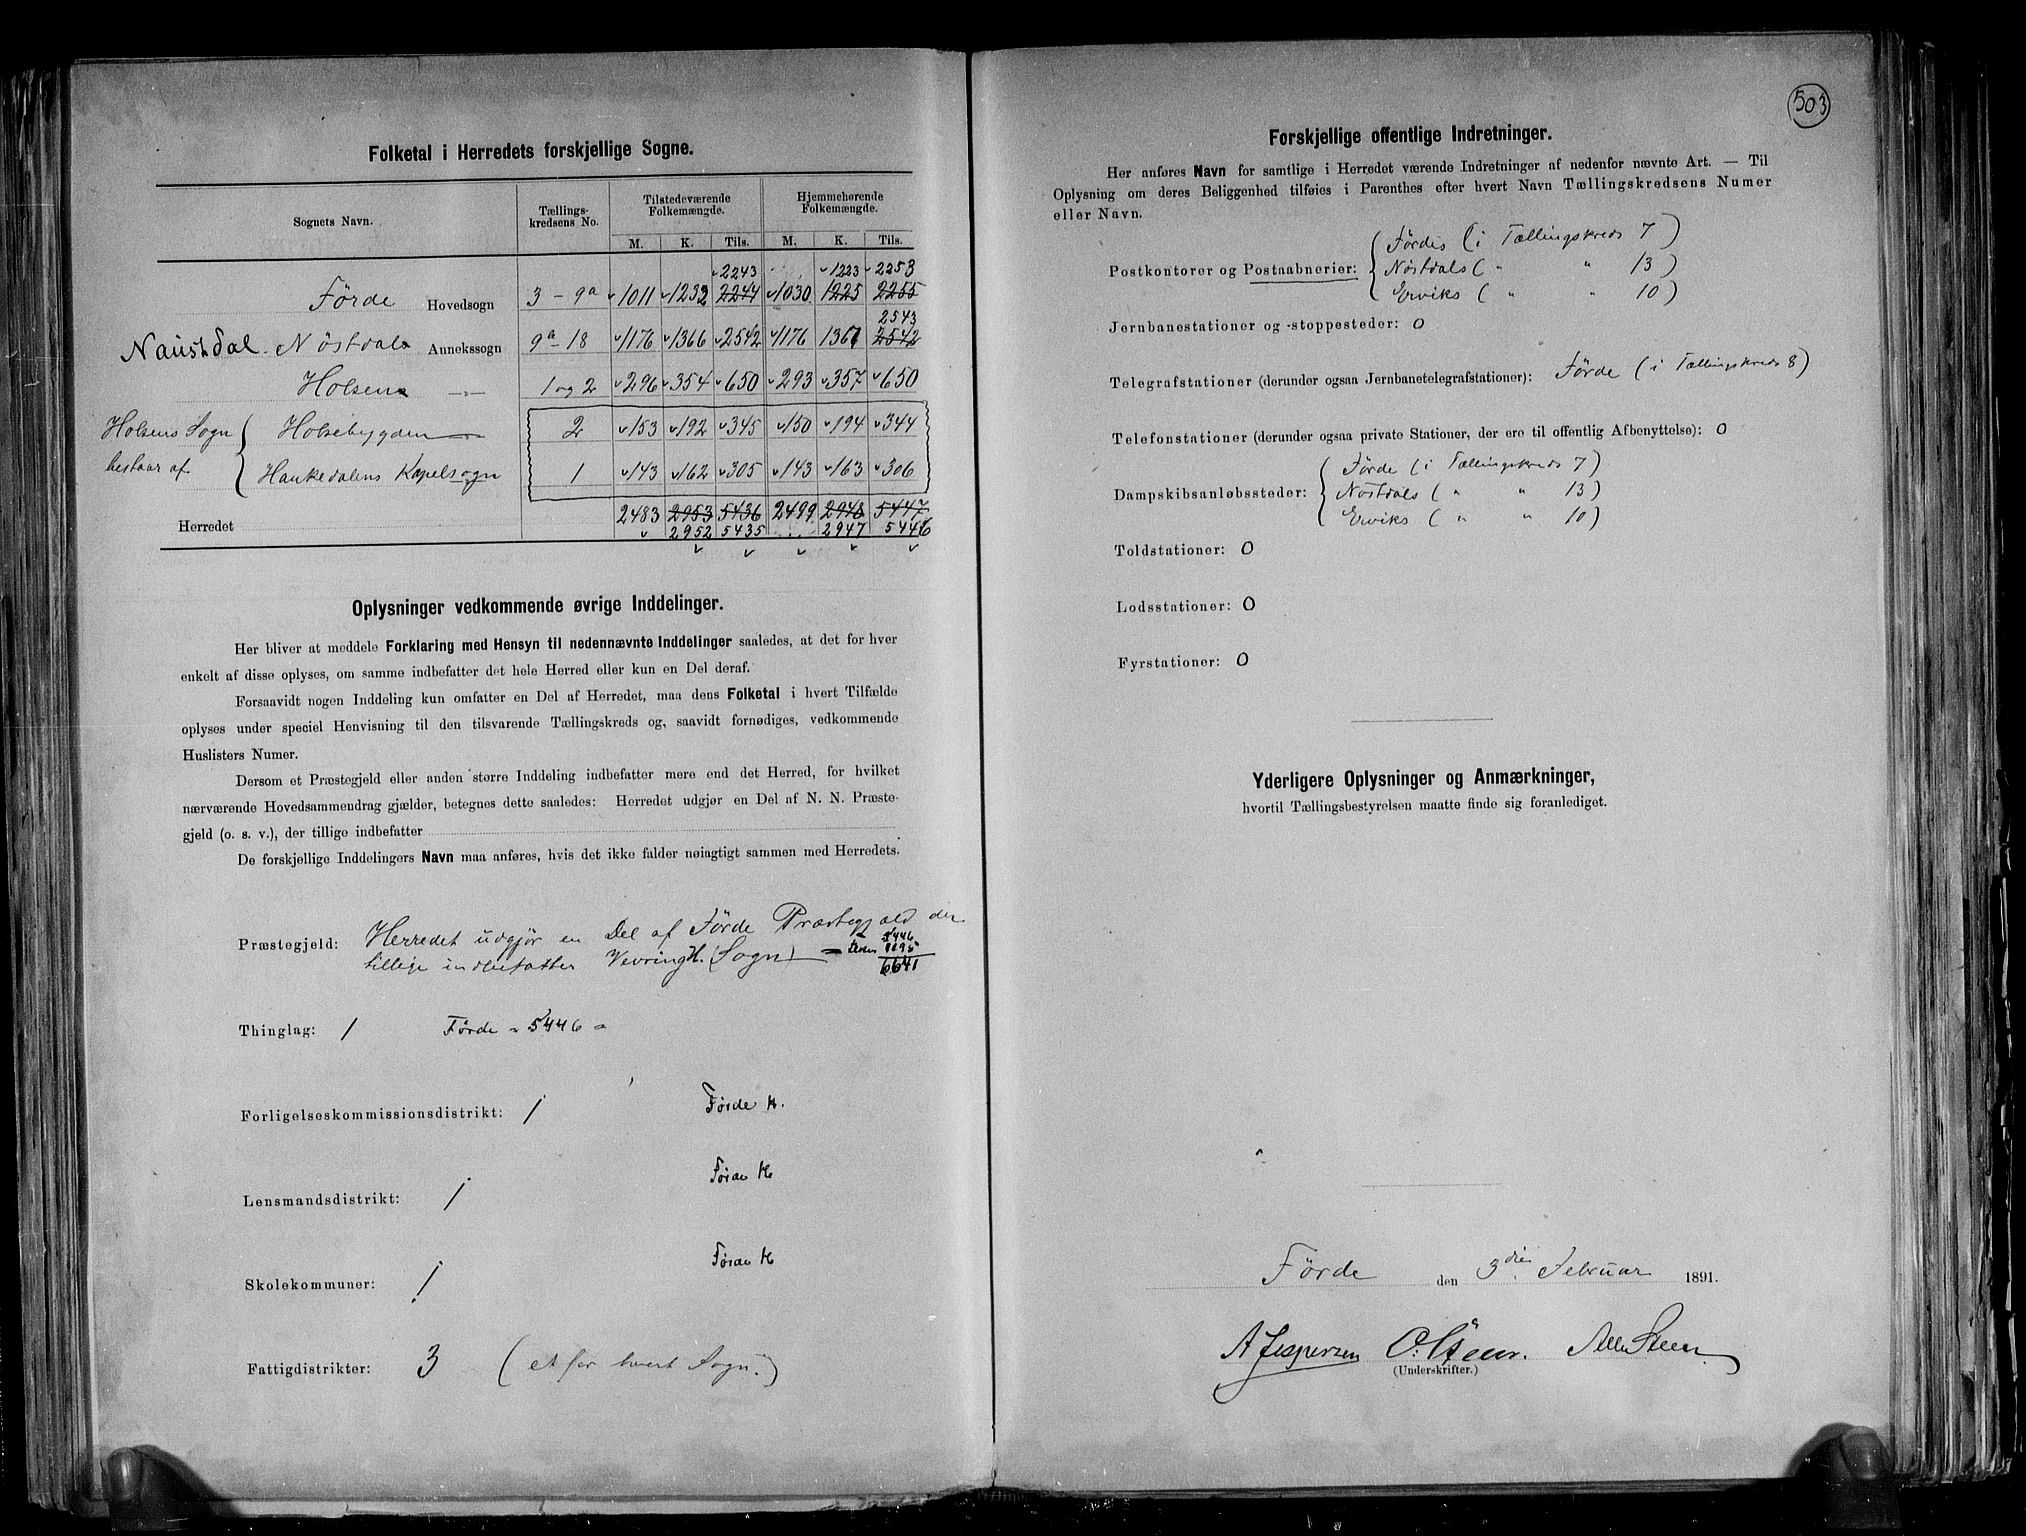 Folketal i Herredets forskjellige Sogne.
Sognets Navn. Tællings-kredsens No. Tilstedeværende Folkemængde. Hjemmehørende Folkemængde.
M. K. Tils. M. K. Tils.
2243 1223 2253
Förde Hovedsogn 3 - 9a 1011 1232 2244 1030 1225 2255
2543
Naustdal. Nöstdals Annekssogn 9a - 18 1176 1366 2542 1176 1367 2542
Holsens -"- 1 og 2 296 354 650 293 357 650
Holsens Sogn Holsebygden 2 153 192 345 150 194 344
bestaar af. Haukedalens Kapelsogn 1 143 162 305 143 163 306
Herredet 2483 2953 5436 2499 2948 5447
2952 5435 2947 5446
Oplysninger vedkommende øvrige Inddelinger.
Her bliver at meddele Forklaring med Hensyn til nedennævnte Inddelinger saaledes, at det for hver
enkelt af disse oplyses, om samme indbefatter det hele Herred eller kun en Del deraf.
Forsaavidt nogen Inddeling kun omfatter en Del af Herredet, maa dens Folketal i hvert Tilfælde
oplyses under speciel Henvisning til den tilsvarende Tællingskreds og, saavidt fornødiges, vedkommende
Huslisters Numer.
Dersom et Præstegjeld eller anden større Inddeling indbefatter mere end det Herred, for hvilket
nærværende Hovedsammendrag gjælder, betegnes dette saaledes: Herredet udgjør en Del af N. N. Præste-
gjeld (o. s. v.), der tillige indbefatter
De forskjellige Inddelingers Navn maa anføres, hvis det ikke falder nøiagtigt sammen med Herredets.
Præstegjeld: Herredet udgjør en Del af Förde Præstegjæld der
tillige indbefatter Vevring H. (Sogn) 5446
1195
6641
Thinglag: 1 Förde = 5446 =
Forligelseskommissionsdistrikt: 1 Førde H.
Lensmandsdistrikt: 1 Førde H
Skolekommuner: 1 Førde H
Fattigdistrikter: 3 (et for hvert Sogn.)
503
Forskjellige offentlige Indretninger.
Her anføres Navn for samtlige i Herredet værende Indretninger af nedenfor nævnte Art. — Til
Oplysning om deres Beliggenhed tilføies i Parenthes efter hvert Navn Tællingskredsens Numer
eller Navn.
Postkontorer og Postaabnerier: Fördes (i Tællingskreds 7)
Nöstdals ( " " 13)
Erviks ( " " 10)
Jernbanestationer og -stoppesteder: 0
Telegrafstationer (derunder ogsaa Jernbanetelegrafstationer): Förde (i Tællingskreds 8)
Telefonstationer (derunder ogsaa private Stationer, der ere til offentlig Afbenyttelse): 0
Dampskibsanløbssteder: Förde (i Tællingskreds 7)
Nöstdals ( " " 13)
Erviks ( " " 10)
Toldstationer: 0
Lodsstationer: 0
Fyrstationer: 0
Yderligere Oplysninger og Anmærkninger,
hvortil Tællingsbestyrelsen maatte finde sig foranlediget.
Förde den 3die Februar 1891.
A Jespersen
(Underskrifter.)